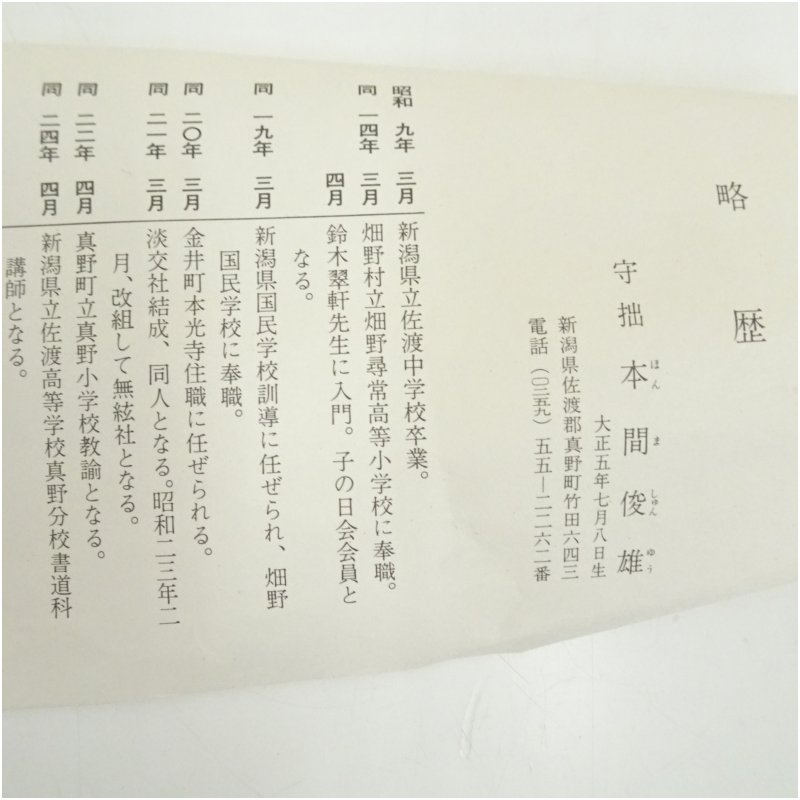 略歴
守拙 本間俊雄
ほん ま しゅん ゆう
大正五年七月八日生
新潟県佐渡郡真野町竹田六四三
電話(〇二五九)五五―二二六二番
昭和 九年 三月 新潟県立佐渡中学校卒業。
同 一四年 三月 畑野村立畑野尋常高等小学校に奉職。
四月 鈴木翠軒先生に入門。子の日会会員と
なる。
同 一九年 三月 新潟県国民学校訓導に任ぜられ、畑野
国民学校に奉職。
同 二〇年 三月 金井町本光寺住職に任ぜられる。
同 二一年 三月 淡交社結成、同人となる。昭和二三年二
月、改組して無絃社となる。
同 二二年 四月 真野町立真野小学校教諭となる。
同 二四年 四月 新潟県立佐渡高等学校真野分校書道科
講師となる。